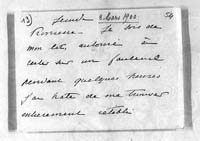 13) Lundi 8 Mars 1900. 54
Je sors de
mon lit, autorisé à
rester sur un fauteuil
pendant quelques heures
J'ai hâte de me trouver
entièrement rétablie